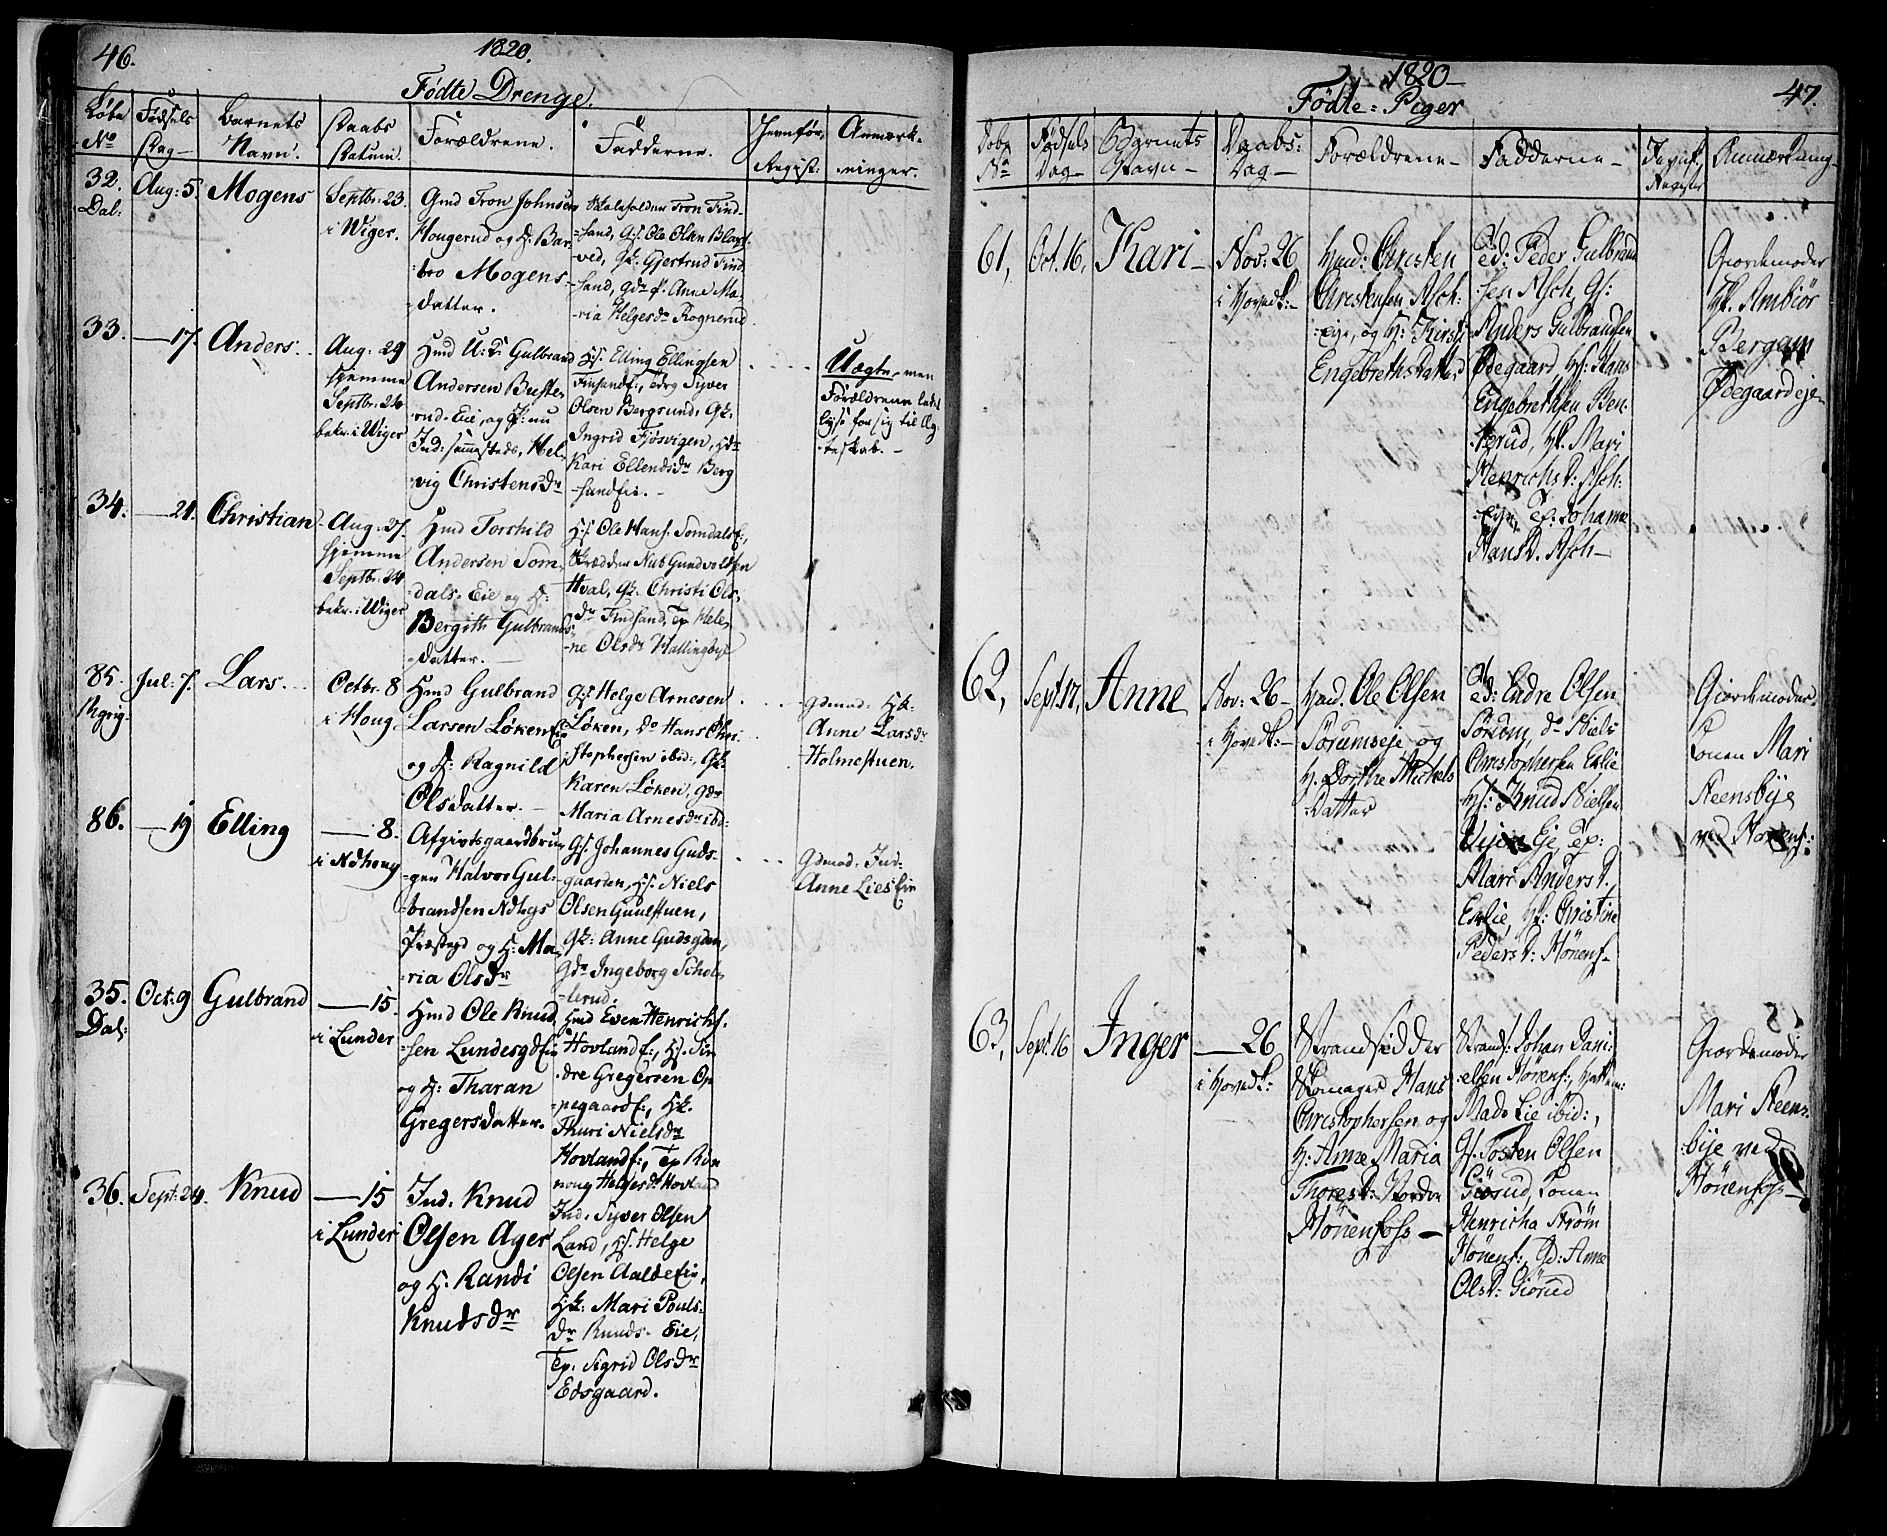 46.
1820.
Fødte Drenge.
Løbe No
Fødsels Dag
Barnets Navn.
Daabs Datum.
Forældrene.
Fadderne.
Jevnfør. Regist:
Anmærkninger.
32. Dal:
Aug: 5.
Mogens
Septbr. 23.
i Wiger.
Gmd Tron Johnsen
Hougerud og H: Bar
-bro Mogens-
-datter.
Skoleholder Tron Find-
-sand, Ole Olsen
ved, Gk. Gjertrud Find
-sand, Anne Ma-
-ria Helgesdr Rognerud
33.
— 17.
Anders.
Aug. 29
hjemme
Septbr. 24
bekr. i Wiger
Hmd U: S: Gulbrand
Andersen Buste-
rud-Eie, og P: nu
Ind: sammesteds, Hel-
vig Christensdr
Hs. Elling Ellingsen
Syver
Olsen Bergsund, Gk.
Ingrid Fjøsvigen, Hdr
Kari Ellendsdr Berg
-sundeie. -
Uægte, men
Forældrene ladet
lyse for sig til Æg-
-teskab. -
34.
— 21.
Christian
Aug. 27.
hjemme
Septbr. 24
bekr. i Wiger
Hmd Torshild
Andersen Som
-dals. Eie og H:
Bergith Gulbrands
-datter.
Hs Ole Hans. Somdalsf:,
Skrædder Nub Gundvoldsen
Hval, Gk: Christi Ols-
dr Findsand, Tp. Hele-
-ne Olsdr Hallingbye
85.
Jul: 7.
Lars.
Octbr. 8
i Houg.
Hmd Gulbrand
Larsen Løkenei
og H: Ragnild
Olsdatter. -
Gs Helge Arnesen
Løken, do Hans Chri-
stophersen ibid:, Gk:
Karen Løken, Gdr
Maria Arnesdr ibd:
Gdmod: Hk:
Anne Larsdr
Holmestuen.
86.
— 19
Elling
— 8.
i Ndhoug
Afgivtsgaardbru-
gen Halvor Gul-
-brandsen Ndhgs
Præstegd og H: Ma-
-ria Olsdr
Gs. Johannes Guds-
gaarden, Hs. Niels
Olsen Guulstuen,
Gk: Anne Gudsgaar,
Gdr Ingeborg Schol-
-lerud.
Gdmod: Ind:
Anne Lies Eie
35. Dal:
Oct: 9
Gulbrand
— 15.
i Lunder
Hmd Ole Knud
-sen Lundesgdei
og H: Tharan
Gregersdatter.
Hmd Even Henrichs.
Hovlandf:, Hs.
-dre Gregersen Op
-pegaardf:, Hk.
Thuri Nielsdr
Hovlandf:, Tp Rön
noug Helgesdr Hovland
36.
Sept: 24.
Knud
— 15
i Lunder
Ind. Knud
Olsen Ager
og H. Randi
Knudsdr
Ind. Syver Olsen
Land, Hs. Helge
Olsen Aaldeie,
Hk: Mari Pouls-
dr Ruuds-Eie,
Tp: Sigrid Olsdr
Edsgaard.
1820
47.
Fødte-Piger
Løbe No
Fødsels Dag-
Barnets Navn-
Daabs: Dag-
Forældrene-
Fadderne-
Jevnf. Register
Anmærkning-
61,
Oct. 16,
Kari-
Nov: 26
i Hovedk:-
Huusmd: Christen
Christensen Asch:
-eje, og H: Kirsti
Engebrethsdatter
Ped: Peder Gulbrand
-sen Asch, Gs:
Anders Gulbrandsen
Ødegaard, Hs: Hans
Engebrethsen Ben-
-terud, Hk. Mari
Henrichsd: Asch:
-eje, Tp: Johanne
Hansd. Asch-
Giordemoder
Hk. Ambiör
Bergan
Ødegaardeje-
62,
Sept. 17,
Anne
Nov: 26-
i Hovedk:-
Huusmd. Ole Olsen
Sørumseje, og
H. Dorthe Michels
Datter
Endre Olsen
Sørum, do Niels
Christophersen Exlie
Hs: Knud Nielsen
Eje Tp:
Mari Andersd.
Exlie, Hk: Christine
Pedersd: Hönenf-
Giordemoder-
konen Mari
Steensbye
ved Hönenf:
63,
Sept. 16
Inger
— 26
i Hovedk:
Strandsidder
Skomager Hans
Christophersen og
H: Anne Maria
Thoresd: Norden
Hönenfoss-
Strands. Johan Dani-
-elsen Hönenf:,
Mads Lie ibid:,
Gs. Tosten Olsen
Giörud, Konen
Henricha Strøm
Hönenf:, Pd: Anne
Olsd: Giörud
Giordemoder
Mari Steens-
-bye ved
Hönenfoss-